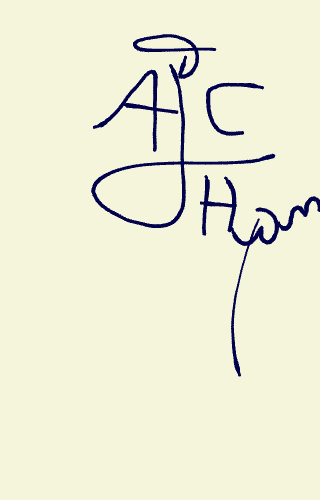 AJC
Ham